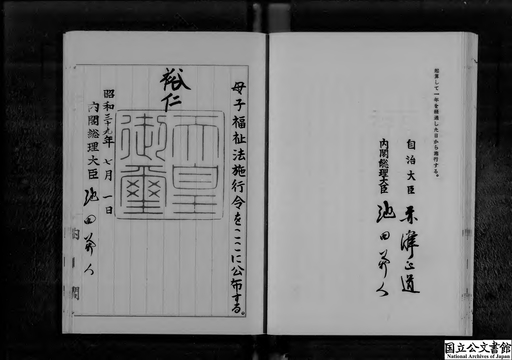 起算して一年を経過した日から施行する。
自治大臣 赤澤正道
内閣総理大臣 池田勇人
母子福祉法施行令をここに公布する。
裕仁
天皇御璽
昭和三十九年七月一日
内閣総理大臣 池田勇人
内閣
国立公文書館
National Archives of Japan